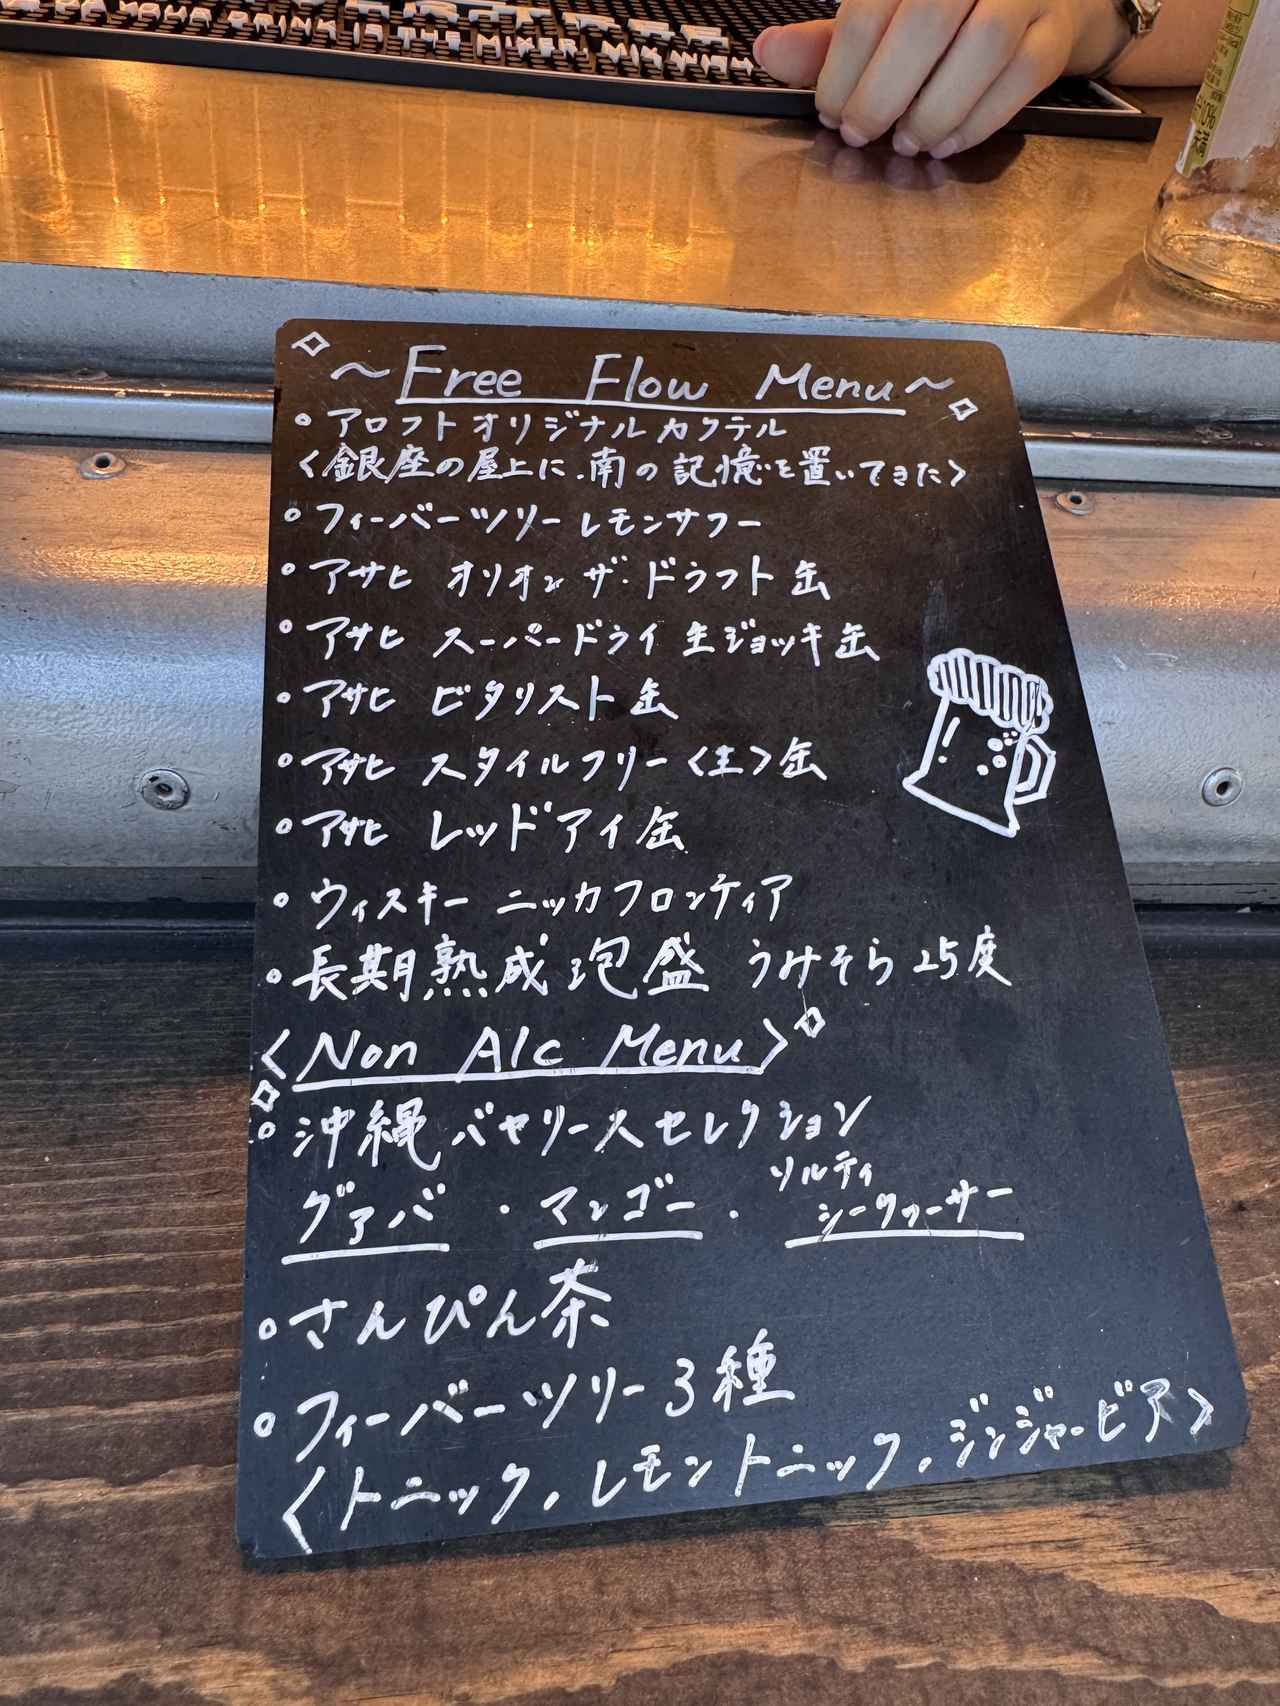 IS THE MIXER MIX WITH
10%
～Free Flow Menu～
アロフトオリジナルカクテル
〈銀座の屋上に、南の記憶を置いてきた〉
フィーバーツリーレモンサワー
アサヒ オリオン ザ・ドラフト缶
アサヒ スーパードライ 生ジョッキ缶
アサヒ ビタリスト缶
アサヒ スタイルフリー〈生〉缶
アサヒ レッドアイ缶
ウィスキー ニッカフロンティア
長期熟成泡盛 うみそら25度
〈Non Alc Menu〉
沖縄バヤリースセレクション
グァバ・マンゴー・ソルティシークヮーサー
さんぴん茶
フィーバーツリー3種
〈トニック、レモントニック、ジンジャービア〉